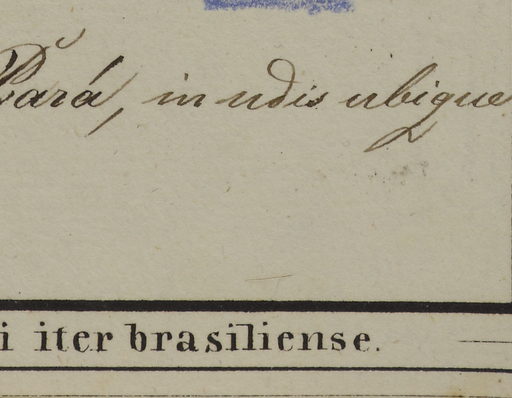 Pará, in udis ubique
i iter brasiliense.